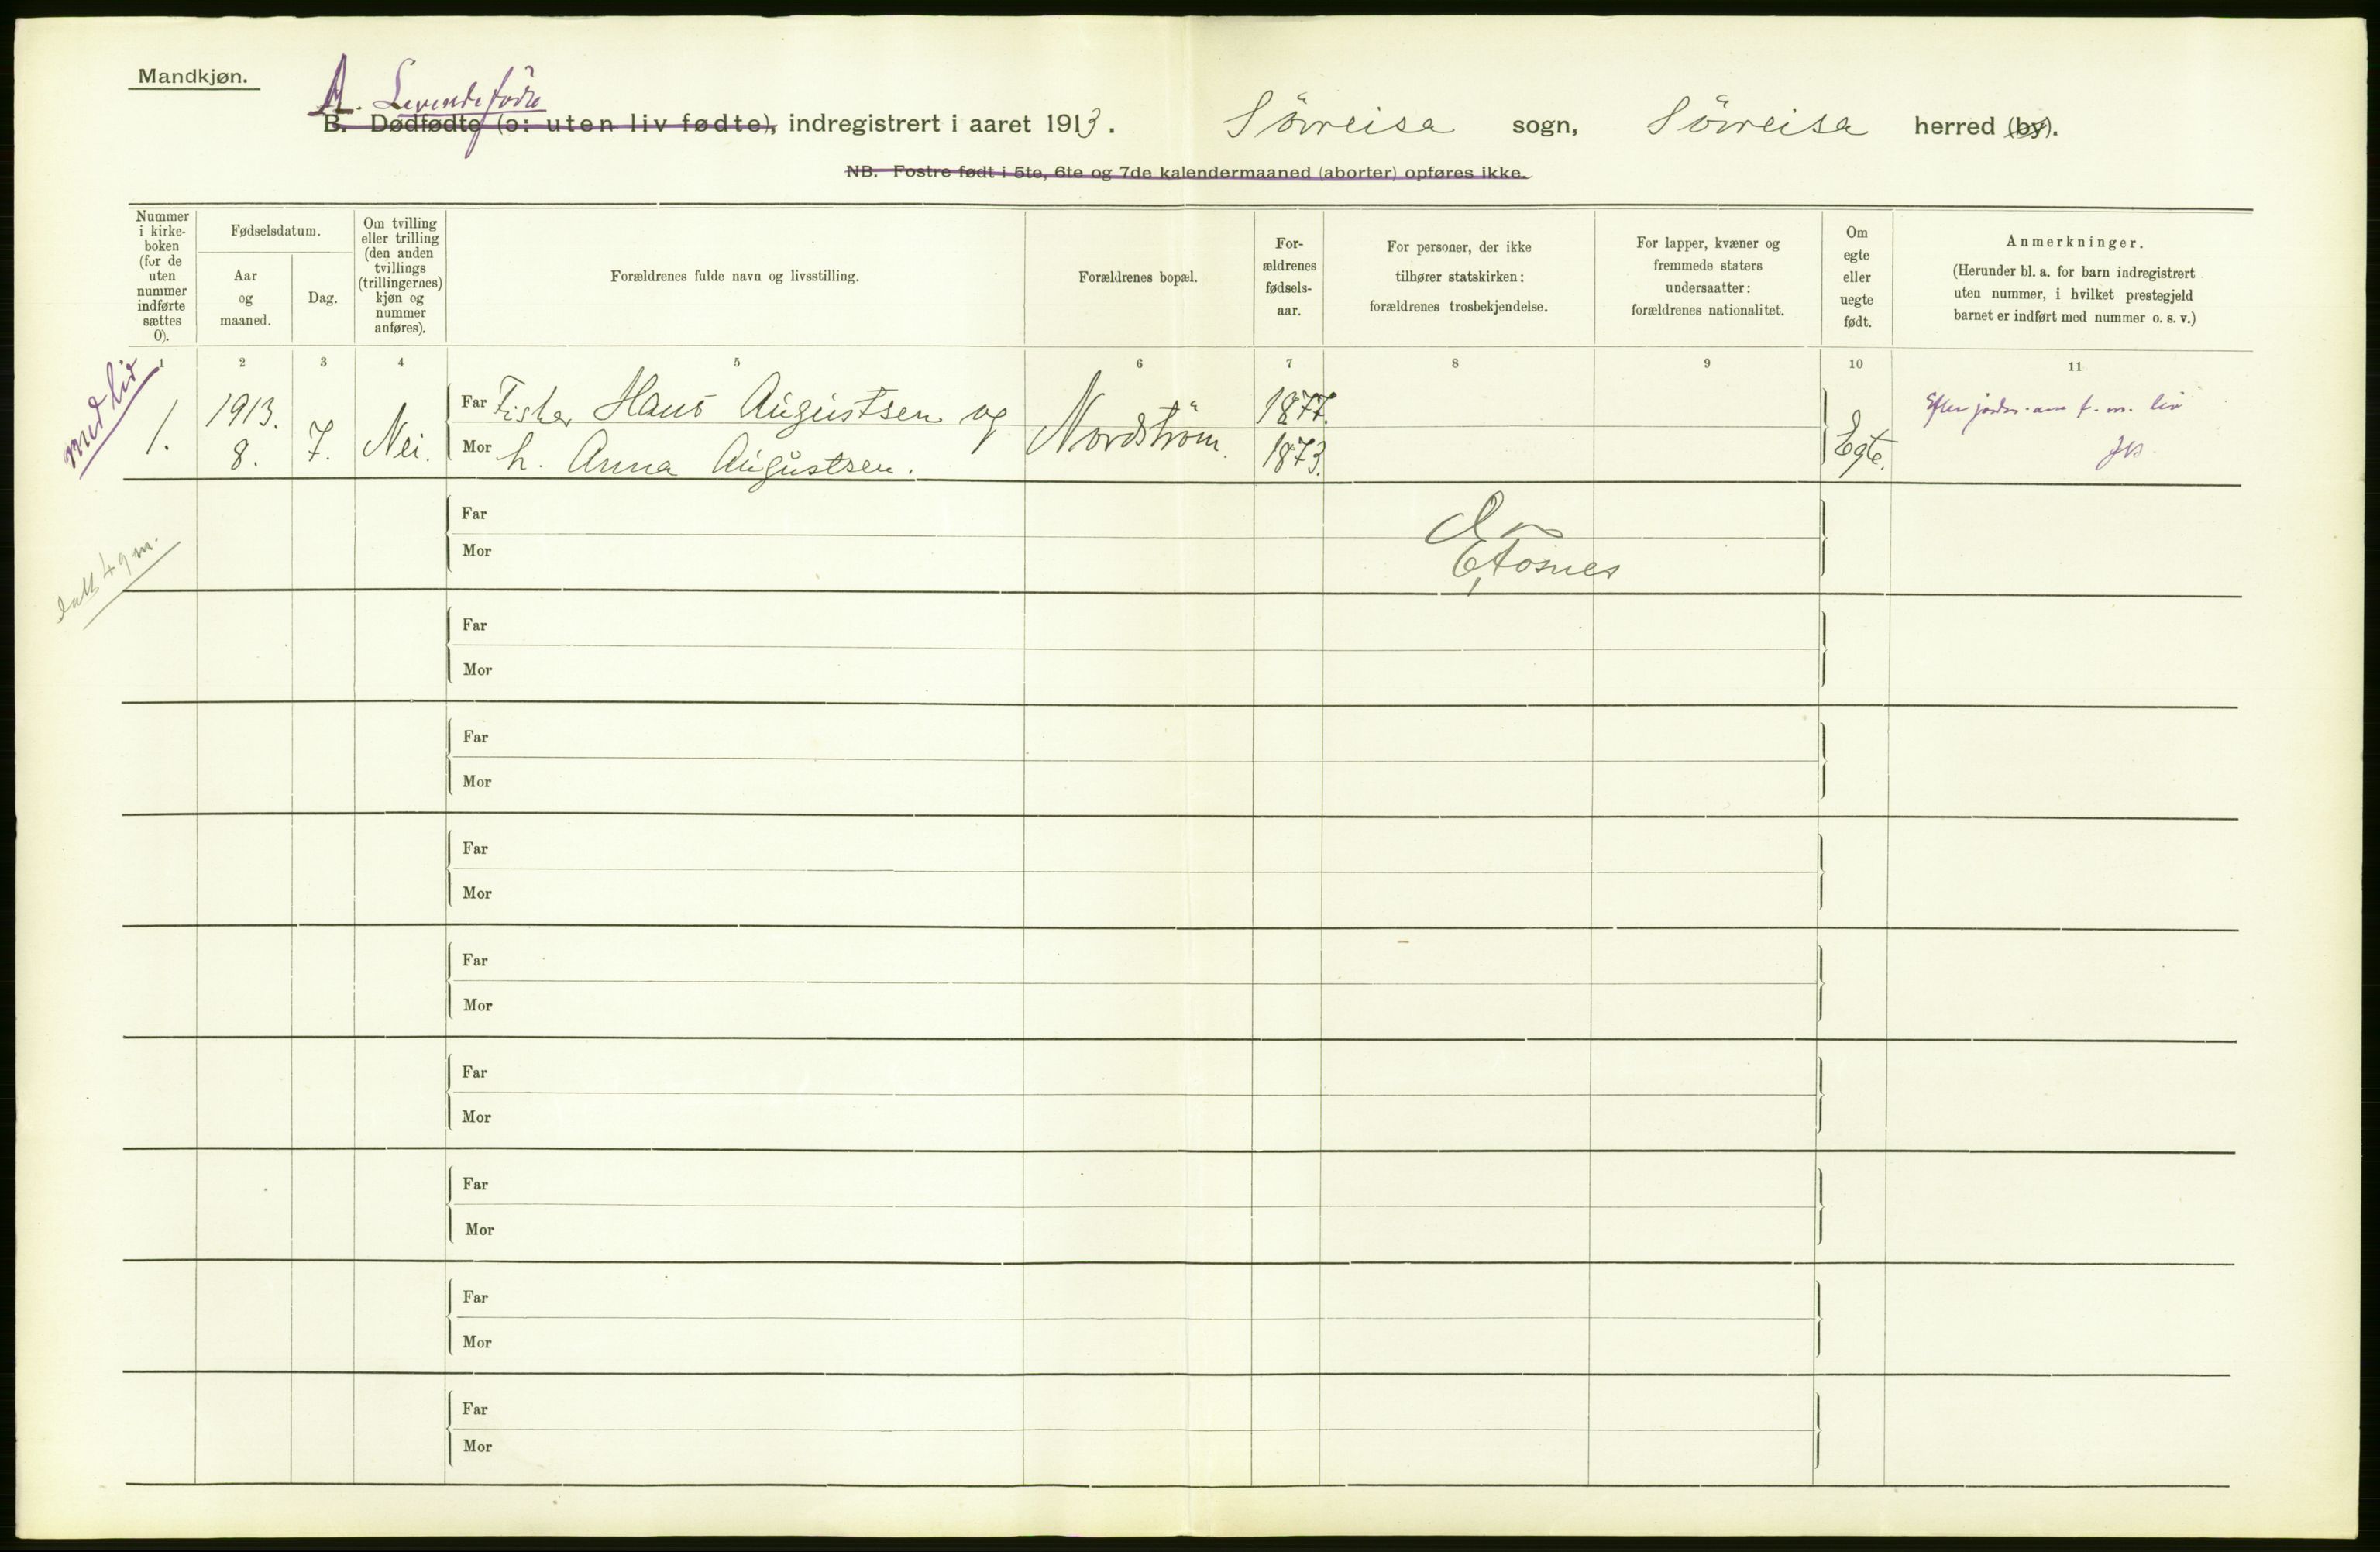 Mandkjøn.
A. Levendefødte
B. Dødfødte (ɔ: uten liv fødte), indregistrert i aaret 1913. Sörreisa sogn, Sörreisa herred (by).
NB. Fostre født i 5te, 6te og 7de kalendermaaned (aborter) opføres ikke.
Nummer
i kirke-
boken
(for de
uten
nummer
indførte
sættes
0).
Fødselsdatum.
Aar
og
maaned.
Dag.
Om tvilling
eller trilling
(den anden
tvillings
(trillingernes)
kjøn og
nummer
anføres).
Forældrenes fulde navn og livsstilling.
Forældrenes bopæl.
For-
ældrenes
fødsels-
aar.
For personer, der ikke
tilhører statskirken:
forældrenes trosbekjendelse.
For lapper, kvæner og
fremmede staters
undersaatter:
forældrenes nationalitet.
Om
egte
eller
uegte
født.
Anmerkninger.
(Herunder bl. a. for barn indregistrert
uten nummer, i hvilket prestegjeld
barnet er indført med nummer o. s. v.)
1 2 3 4 5 6 7 8 9 10 11
med liv
1. 1913. 8. 7. Nei.
Far Fisker Hans Augustsen og
Mor h. Anna Augustsen.
Nordström.
1877.
1873.
Egte.
Efter f. m. liv
Far
Mor
4 9 m.
Far
Mor
Far
Mor
Far
Mor
Far
Mor
Far
Mor
Far
Mor
Far
Mor
Far
Mor